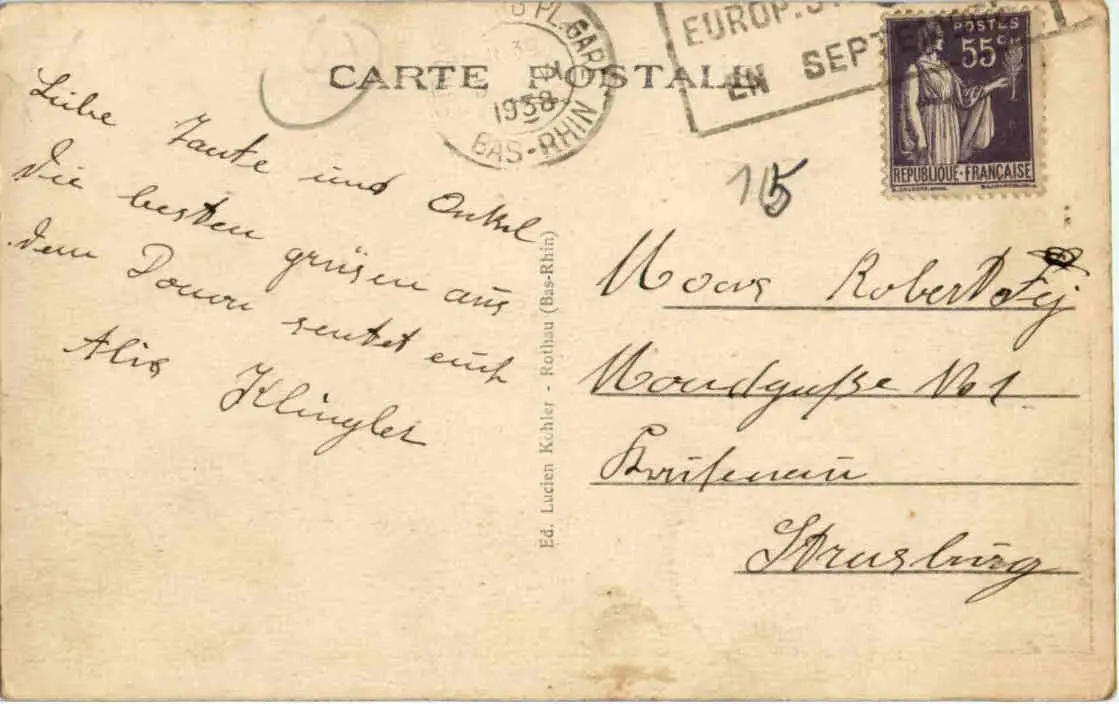 CARTE POSTALE
PL. GARE
1938
BAS-RHIN
EUROP.
EN SEPTEM
POSTES
55 c
REPUBLIQUE-FRANÇAISE
15
Liebe Tante und Onkel
Die besten grüsen aus
dem Donon sentet euch
Alis Klingler
Ed. Lucien Kohler - Rothau (Bas-Rhin)
Robert
No 1
Strasburg